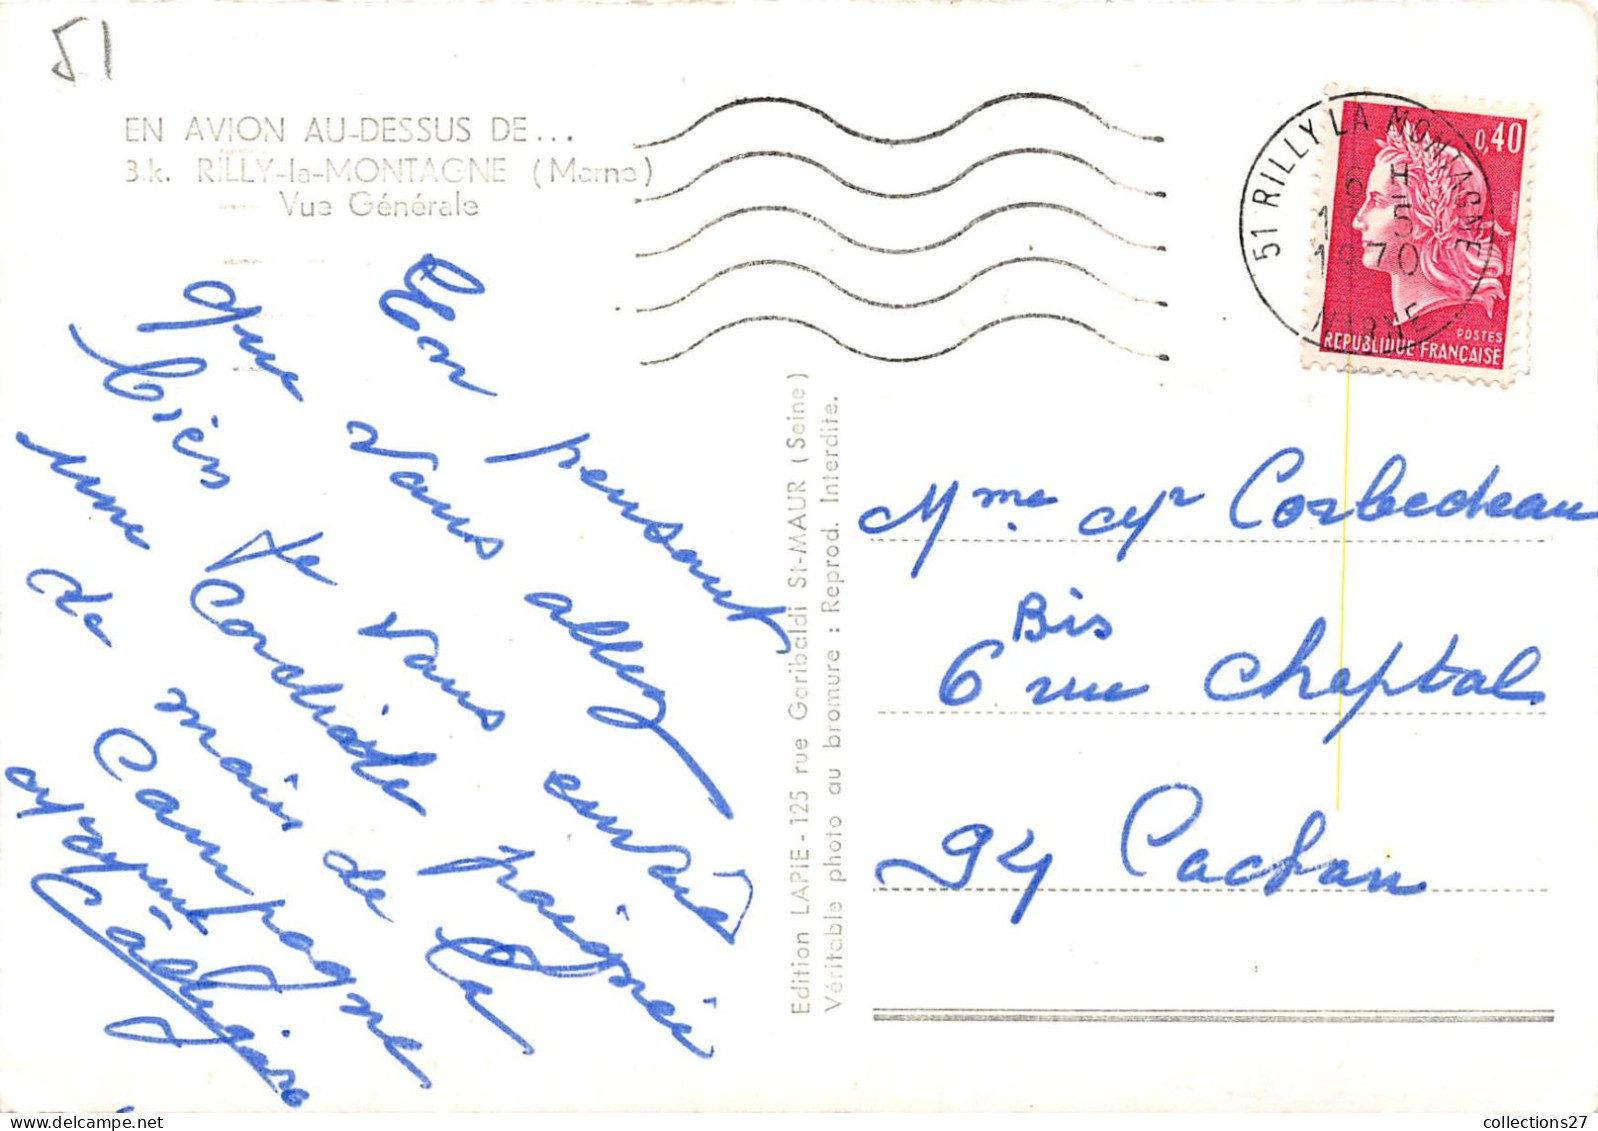 51
EN AVION AU-DESSUS DE...
3.k. RILLY-la-MONTAGNE (Marne)
Vue Générale
En pensant
que vous allez
bien je vous envoie
une cordiale poignée
de main de la
Campagne
51 RILLY LA MONTAGNE
6 H
1 5
1970
MARNE
0,40
POSTES
REPUBLIQUE FRANÇAISE
Edition LAPIE - 125 rue Garibaldi St-MAUR (Seine)
Véritable photo au bromure : Reprod. Interdite.
Mme Corbedeau
Bis
6 rue Cheptal
94 Cachan
collections27